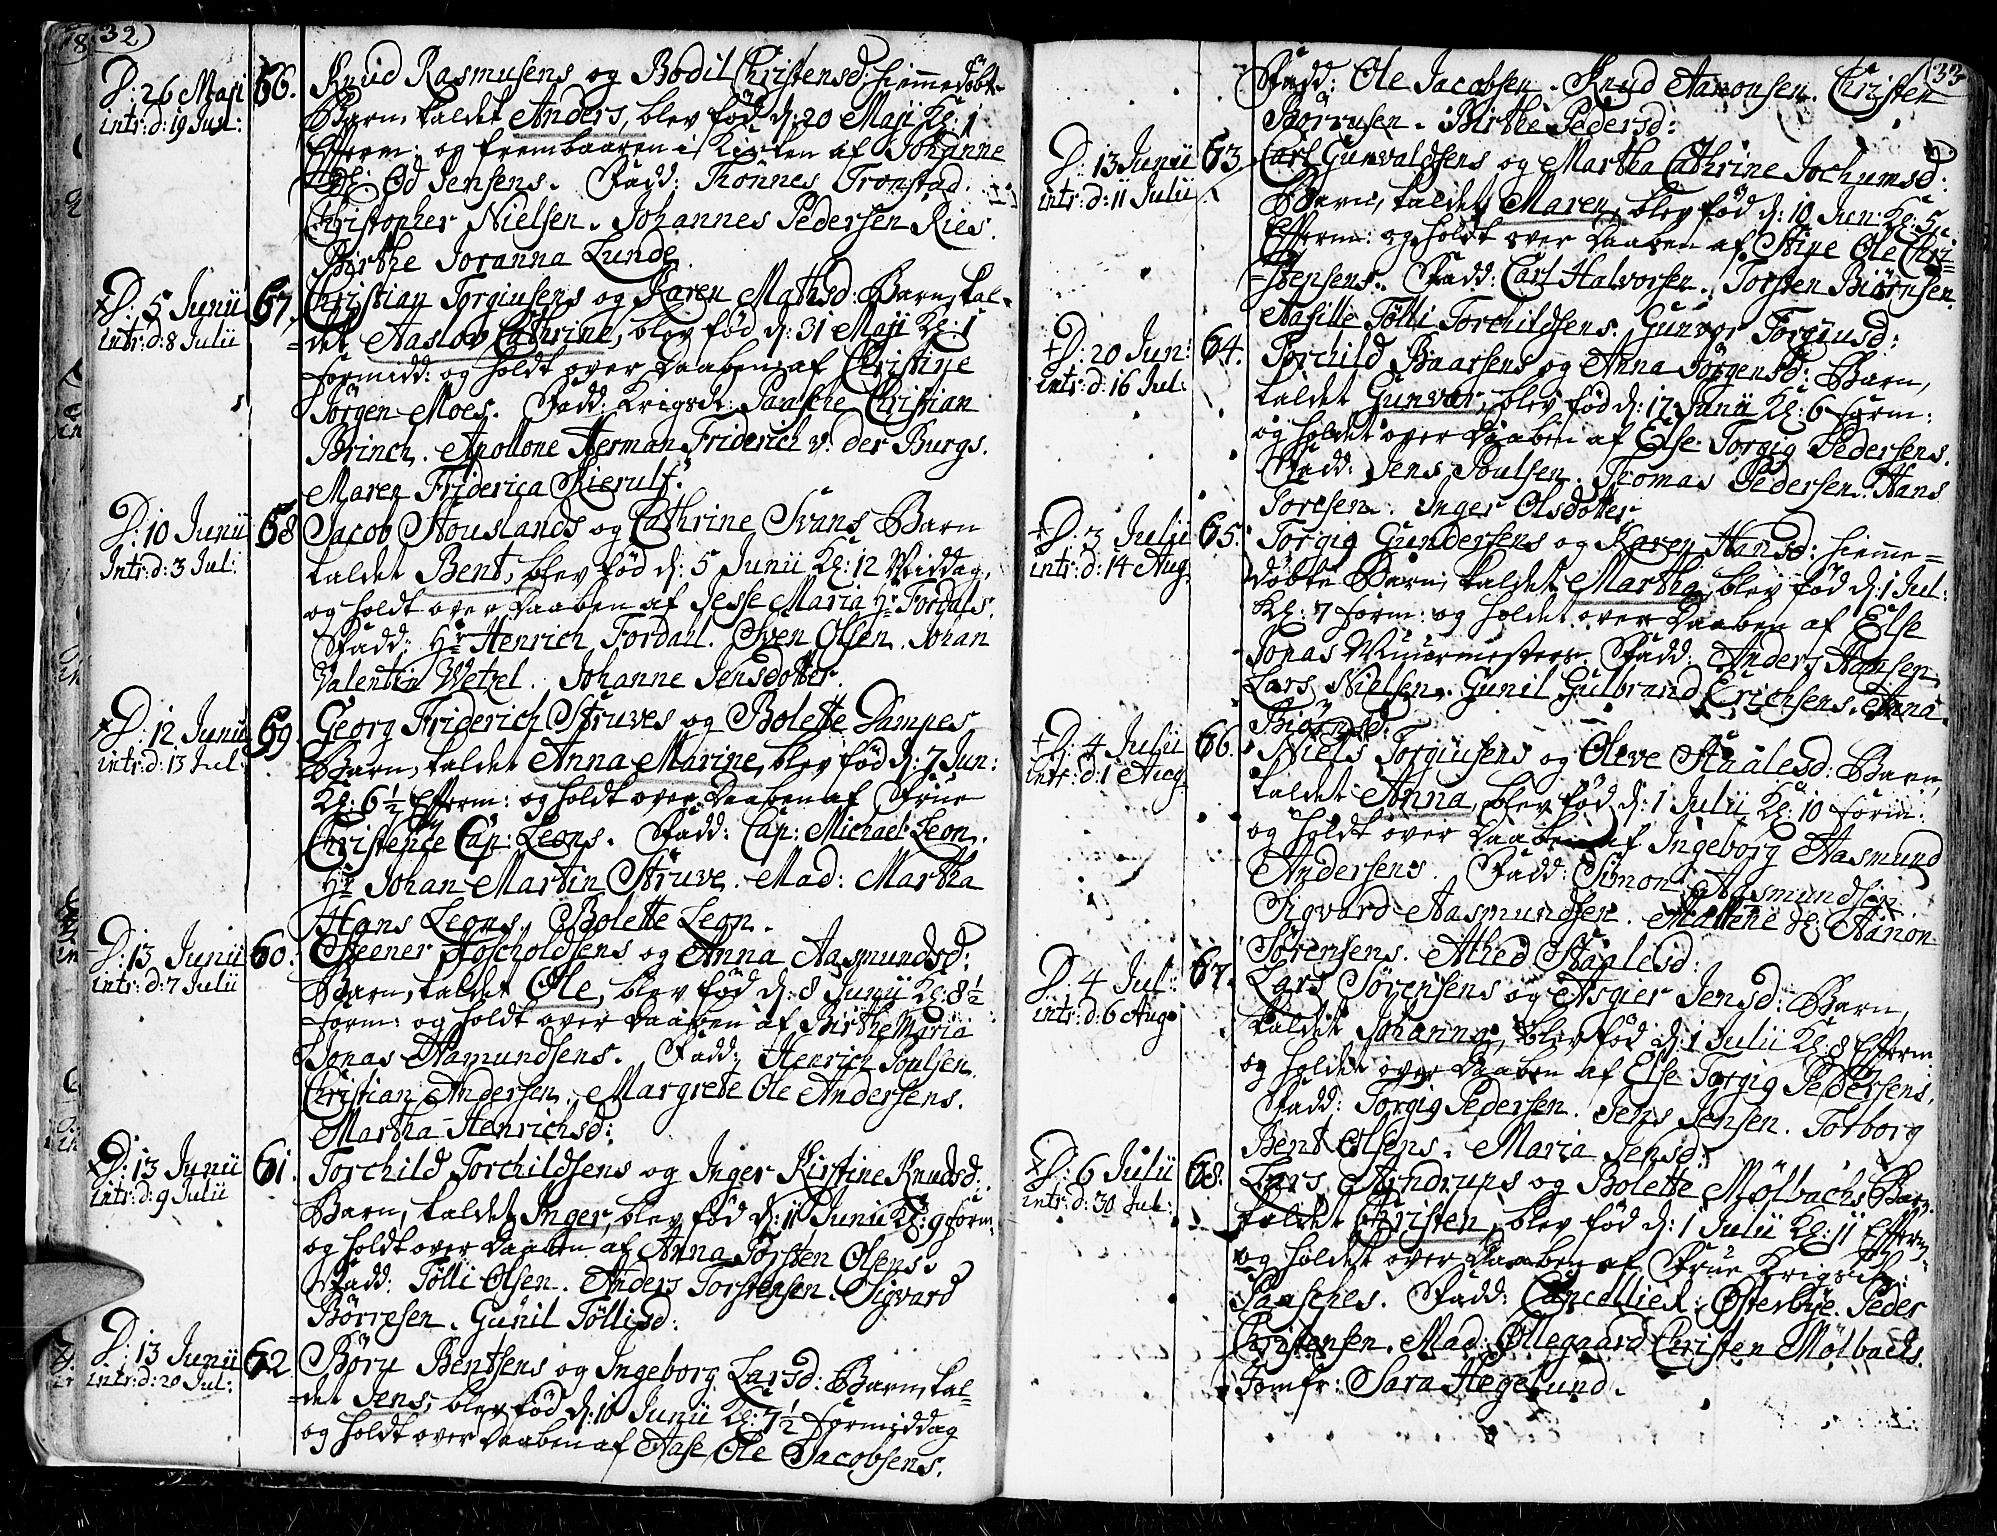 32
D: 26 Maji
intr: d: 19 Jun:
56.
Knud Rasmusens og Bodil Christensd: hiemmedøbte
Barn, kaldet Anders, blev fød d: 20 Maji Kl: 1
Efterm: og frembaaren i Kirken af Johanne
Jensens. Fadd: Thonnes Tronstad.
Christopher Nielsen. Johannes Pedersen Ries.
Birthe Joranna Lunde.
D: 5 Junii
intr: d: 8 Julii
57.
Christian Torgiusens og Karen Mathsd: Barn, kal-
det Aaslov Cathrine, blev fød d: 31 Maji Kl: 1
formidd: og holdt over Daaben af Christine
Jørgen Moes. Fadd: Krigsr: Paasche. Christian
Brinch. Apollone Herman Friderich v: der Burgs.
Maren Friderica Kierulf.
D: 10 Junii
Intr: d: 3 Jul:
58
Jacob Stouslands og Cathrine Svans Barn
kaldet Bent, blev fød d: 5 Junii Kl: 12 Middag,
og holdt over Daaben af Jesse Maria Hr Tordals.
Fadd: Hr Henrich Tordall. Sven Olsen. Johan
Valentin Wetzel. Johanne Jensdotter.
D: 12 Junii
intr: d: 13 Jul:
59.
Georg Friderich Struves og Bolette Dampes
Barn, kaldet Anna Marine, blev fød d: 7 Jun:
Kl: 6½ Efterm: og holdt over Daaben af Frue
Christence Cap: Leons. Fadd: Cap: Michael Leon.
Hr Johan Martin Struve. Mad: Martha
Hans Leons. Bolette Leon.
D: 13 Junii
intr: d: 7 Julii
60.
Steener Hoscholdsens og Anna Aasmundsd:
Barn, kaldet Ole, blev fød d: 8 Junii Kl: 8½
form: og holdt over Daaben af Birthe Maria
Jonas Aamundsens. Fadd: Henrich Poulsen.
Christian Andersen. Margrete Ole Andersens.
Martha Henrichsd:
D: 13 Junii
intr: d: 9 Julii
61.
Torchild Torchildsens og Inger Kirstine Knudsd:
Barn, kaldet Inger, blev fød d: 11 Junii Kl: 9 form:
og holdt over Daaben af Anna Torsten Olsens.
Fadd: Tølli Olsen. Anders Torstensen. Sigvard
Børresen. Gunil Tøllisd:
D: 13 Junii
intr: d: 20 Jul:
62
Børu Bentsens og Ingeborg Larsd: Barn, kal-
det Jens, blev fød d: 10 Junii Kl: 7½ formiddag
og holdt over Daaben af Aase Ole Jacobsens.
33
Fadd: Ole Jacobsen. Knud Aanonsen. Christen
Børrusen. Birthe Pedersd:
D: 13 Junii
intr: d: 11 Julii
63
Carl Gunvaldsens og Martha Cathrine Jochumsd:
Barn, kaldet Maren, blev fød d: 10 Jun: Kl: 5
Efterm: og holdt over Daaben af Stine Ole Chri-
stensens. Fadd: Carl Halvorsen. Torsten Biørnsen.
Aasille Tølli Torchildsens. Gunvor Torgiusd:
D: 20 Jun:
intr: d: 16 Jul:
64.
Torchild Baarsens og Anna Jørgensd: Barn,
kaldet Gunvor, blev fød d: 17 Junii Kl: 6 form:
og holdet over Daaben af Else Torgig Pedersens.
Fadd: Jens Poulsen. Thomas Pedersen. Hans
Toresen. Inger Olsdotter
D: 3 Julii
intr: d: 14 Aug
65.
Torgig Gundersens og Karen Hansd: hieme-
døbte Barn, kaldet Martha, blev fød d: 1 Jul:
Kl: 7 form: og holdet over Daaben af Else
Jonas Muurmesters. Fadd: Anders Hansen
Lars Nielsen. Gunil Gulbrand Erichsens. Anna
Biørnsd:
D: 4 Julii
intr: d: 1 Aug
66.
Niels Torgiusens og Oleve Staalesd: Barn,
kaldet Anna, blev fød d: 1 Julii Kl: 10 form:
og holdt over Daaben af Ingeborg Aasmund
Andersens. Fadd: Simon Aasmundsen.
Sigvard Aasmundsen. Mallene Aanon
Sørensens. Athed Staalesd:
D: 4 Jul:
intr: d: 6 Aug
67.
Lars Sørensens og Asgier Jensd: Barn,
kaldet Johanna, blev fød d: 1 Julii Kl: 8 Efterm
og holdet over Daaben af Else Torgig Pedersens.
Fadd: Torgig Pedersen. Jens Jensen. Torborg
Bent Olsens. Maria Jensd:
D: 6 Julii
intr: d: 30 Jul:
68.
Lars Arndrups og Bolette Mølbachs Barn
kaldet Christen, blev fød d: 1 Julii Kl: 11 Efterm:
og holdet over Daaben af Frue Krigsr:
Paasches. Fadd: Cancellier: Østerbye. Peder
Christensen. Mad: Øllegaard Christen Mølbachs.
Jomfr: Sara Hegelund.